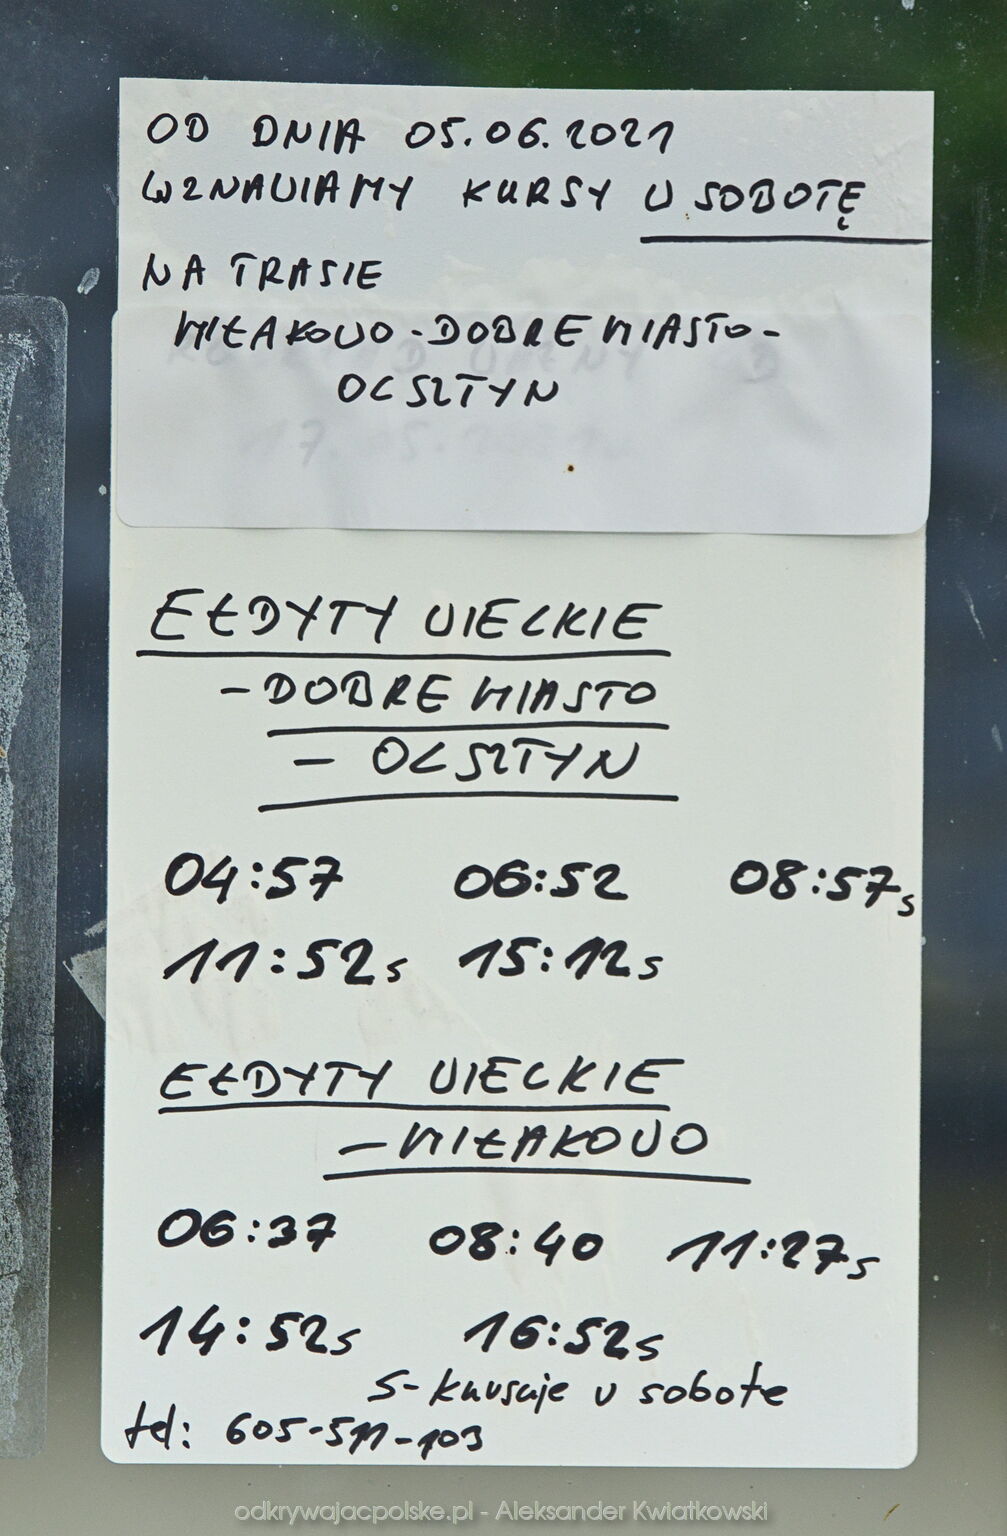 OD DNIA 05.06.2021
WZNAWIAMY KURSY W SOBOTĘ
NA TRASIE
MIŁAKOWO-DOBRE MIASTO-
OLSZTYN
EŁDYTY WIELKIE
- DOBRE MIASTO
- OLSZTYN
04:57 06:52 08:57s
11:52s 15:12s
EŁDYTY WIELKIE
- MIŁAKOWO
06:37 08:40 11:27s
14:52s 16:52s
S- kursuje w sobote
tel: 605-511-103
odkrywajacpolske.pl - Aleksander Kwiatkowski